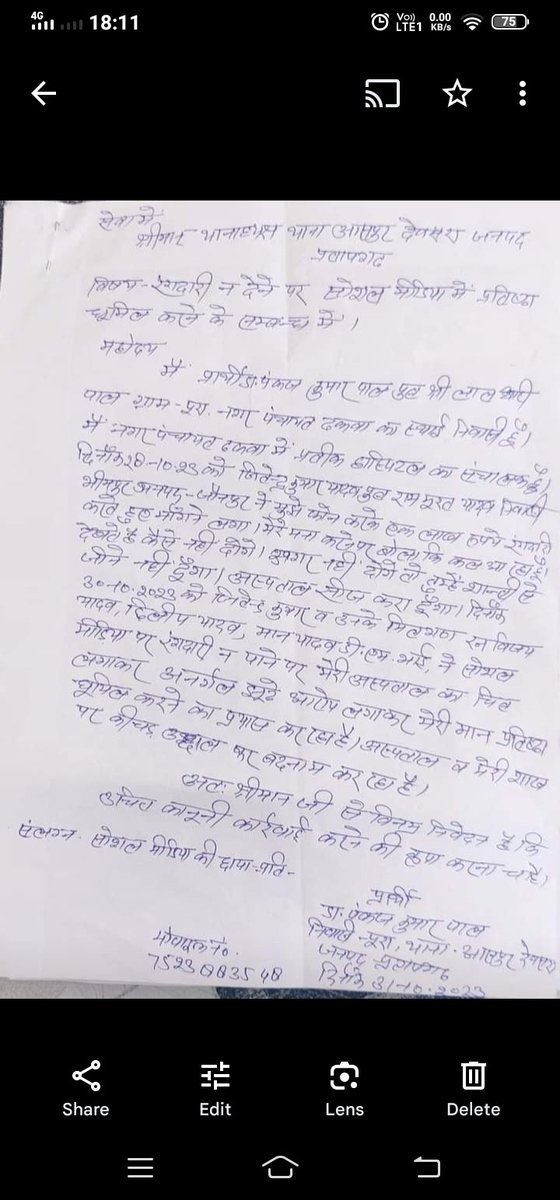 4G
18:11
Vo))
LTE1
0.00
KB/s
75
सेवा में
श्रीमान थानाध्यक्ष थाना आसपुर देवसरा जनपद
प्रतापगढ़
विषय- रंगदारी न देने पर सोशल मीडिया में प्रतिष्ठा
धूमिल करने के सम्बन्ध में।
महोदय
मैं प्रार्थी डा. पंकज कुमार पाल पुत्र श्री लाल
पाल ग्राम-पूरा. नगर पंचायत ढकवा का स्थाई निवासी हूँ।
मैं नगर पंचायत ढकवा में प्रतीक हास्पिटल का संचालक हूँ।
दिनाँक 28-10-23 को जितेन्द्र कुमार यादव पुत्र राम मूरत यादव निवासी
भीमपुर जनपद-जौनपुर ने मुझे फोन करके एक लाख रूपये रंगदारी
करते हुए माँगने लगा। मेरे मना करने पर बोला कि कल आ रहा हूँ
देखते है कैसे नही दोगे। अगर नहीं दोगे तो तुम्हें शान्ती से
जीने नही दूँगा। अस्पताल सीज करा दूँगा। दिनाँक
30-10-2023 को जितेन्द्र कुमार व उनके मित्रगण रन विजय
यादव, दिलीप यादव, मान यादव डी.एम. भाई, ने सोशल
मीडिया पर रंगदारी न पाने पर मेरी अस्पताल का चित्र
लगाकर अनर्गल झूठे आरोप लगाकर मेरी मान प्रतिष्ठा
धूमिल करने का प्रयास कर रहा है। अस्पताल व मेरी शाख
पर कीचड़ उछाल कर बदनाम कर रहा है।
अतः श्रीमान जी से विनम्र निवेदन है कि
उचित कानूनी कार्रवाई करने की कृपा करना चाहें।
संलग्न- सोशल मीडिया की छाया-प्रति-
प्रार्थी
डा. पंकज कुमार पाल
निवासी-पूरा, थाना- आसपुर देवसरा
जनपद प्रतापगढ़
दिनाँक 31-10-2023
मोबाइल नं.
Share
Edit
Lens
Delete